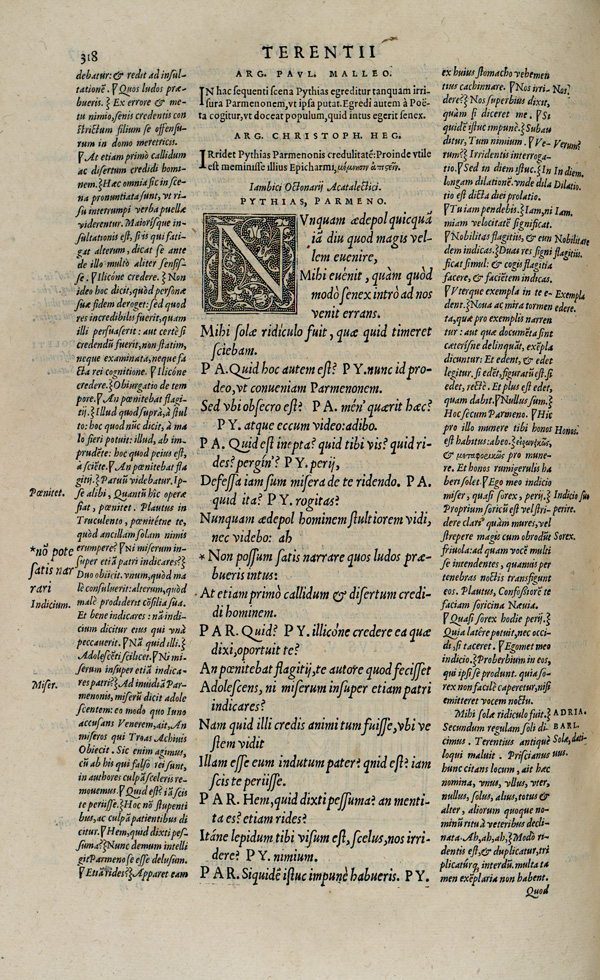 318
TERENTII
debatur: & redit ad insul-
tationē. ꝟQuos ludos præ-
bueris.} Ex errore & me-
tu nimio, senis credentis con
strictum filium se offensu-
rum in domo meretricis.
ꝟAt etiam primò callidum
ac disertum credidi homi-
nem.}Hæc omnia sic in sce-
na pronuntiata sunt, vt ri-
su interrumpi verba puellæ
viderentur. Maiorísque in-
sultationis est, si is qui fati-
gat alterum, dicat se ante
de illo multò aliter sensis-
se. ꝟIllicóne credere.} Non
ideo hoc dicit, quòd personæ
suæ fidem deroget: sed quod
res incredibilis fuerit, quam
illi persuaserit: aut certè si
credendū fuerit, non statim,
neque examinata, neque fa
cta rei cognitione. ꝟIllicóne
credere.} Obiurgatio de tem
pore. ꝟAn pœnitebat flagi-
tij.} Illud quod suprà, à stul
to: hoc quod nūc dicit, à ma
lo fieri potuit: illud, ab im-
prudēte: hoc quod peius est,
à sciēte. ꝟAn pœnitebat fla
gitij.} Parū videbatur. Ip-
Pœnitet.
se alibi, Quantū hîc operæ
fiat, pœnitet. Plautus in
Truculento, pœnitétne te,
quòd ancillam solam nimis
erumpere? ꝟNi miserum in-
*nō pote
super etiā patri indicares?}
satis nar
Duo obiicit. vnum, quòd ma
rari
lè consuluerit: alterum, quòd
Indicium.
malè prodiderit cōsilia sua.
Et bene indicares: nā indi-
cium dicitur eius qui vnà
peccauerit. ꝟNā quid illi.}
Adolescēti scilicet. ꝟNi mi-
serum insuper etiā indica-
Miser.
res patri?} Ad inuidiā Par-
menonis, miserū dicit adole
scentem: eo modo quo Iuno
accusans Venerem, ait, An
miseros qui Troas Achiuis
Obiecit. Sic enim agimus,
cū ab his qui falsò rei sunt,
in authores culpā sceleris re-
mouemus. ꝟQuid est? iā scis
te periisse.} Hoc nō stupenti
bus, ac culpā patientibus di
citur. ꝟHem, quid dixti pes-
suma?} Nunc demum intelli
git Parmeno se esse delusum.
ꝟEtiā rides?} Apparet eam
ARG. PAVL. MALLEO.
IN hac sequenti scena Pythias egreditur tanquam irri-
sura Parmenonem, vt ipsa putat. Egredi autem à Poë-
ta cogitur, vt doceat populum, quid intus egerit senex.
ARG. CHRISTOPH. HEG.
IRridet Pythias Parmenonis credulitatē: Proinde vtile
est meminisse illius Epicharmi,
Iambici Octonarij Acatalectici.
PYTHIAS, PARMENO.
NVnquam ædepol quicquā
iā diu quod magis vel-
lem euenire,
Mihi euênit, quàm quòd
modò senex intrò ad nos
venit errans.
Mihi solæ ridiculo fuit, quæ quid timeret
sciebam.
PA. Quid hoc autem est? PY. nunc id pro-
deo, vt conueniam Parmenonem.
Sed vbi obsecro est? PA. mén' quærit hæc?
PY. atque eccum video: adibo.
PA. Quid est inepta? quid tibi vis? quid ri-
des? pergin'? PY. perij,
Defessa iam sum misera de te ridendo. PA.
quid ita? PY. rogitas?
Nunquam ædepol hominem stultiorem vidi,
nec videbo: ah
*Non possum satis narrare quos ludos præ-
bueris intus:
At etiam primò callidum & disertum credi-
di hominem.
PAR. Quid? PY. illicóne credere ea quæ
dixi, oportuit te?
An pœnitebat flagitij, te autore quod fecisset
Adolescens, ni miserum insuper etiam patri
indicares?
Nam quid illi credis animi tum fuisse, vbi ve
stem vidit
Illam esse eum indutum pater? quid est? iam
scis te periisse.
PAR. Hem, quid dixti pessuma? an menti-
ta es? etiam rides?
Itáne lepidum tibi visum est, scelus, nos irri-
dere? PY. nimium.
PAR. Siquidē istuc impunè habueris. PY.
ex huius stomacho vehemen
tius cachinnare. ꝟNos irri-
Nos.
dere?} Nos superbius dixit,
quàm si diceret me. ꝟSi
quidē istuc impunè.} Subau
ditur, Tum nimium. ꝟVe-
Verum?
rum?} Irridentis interroga-
tio. ꝟSed in diem istuc.} In
In diem.
longam dilationē. vnde dila
Dilatio.
tio est dicta diei prolatio.
ꝟTu iam pendebis.} Iam, ni
Iam.
miam velocitatē significat.
ꝟNobilitas flagitiis, & eum
Nobilitate
dem indicas.} Duas res signi
flagitiis.
ficat simul: & cogis flagitia
facere, & facientem indicas.
ꝟVterque exempla in te e-
Exempla
dent.} Noua ac mira tormen
edere.
ta, quæ pro exemplis narren
tur: aut quæ documēta sint
cæteris ne delinquāt, exēpla
dicuntur: Et edent, & edet
legitur. si edēt, figuratū est. si
edet, rectè. Et plus est edet,
quàm dabit. ꝟNullus sum.}
Hoc secum Parmeno. ꝟHic
pro illo munere tibi honos
Honos.
est habitus: abeo.}
& pro mune-
re. Et honos rumigerulis ha
beri solet. ꝟEgo meo indicio
miser, quasi sorex, perij.}
Indicio suo
Proprium soricū est vel stri-
perire.
dere clariᵘˢ quàm mures, vel
strepere magis cum obrodūt
Sorex.
friuola: ad quam vocē multi
se intendentes, quamuis per
tenebras noctis transfigunt
eos. Plautus, Confossióre te
faciam soricina Nænia.
ꝟQuasi sorex hodie perij.}
Quia latêre potuit, nec occi-
di, si taceret. ꝟEgomet meo
indicio.} Prouerbium in eos,
qui ipsi se produnt. quia so-
rex non facilè caperetur, nisi
emitteret vocem noctu.
Mihi solæ ridiculo fuit.}
ADRIA.
Secundum regulam soli di-
BARL.
cimus. Terentius antiquè
Solæ, dati-
loqui maluit. Priscianus
uus.
hunc citans locum, ait hæc
nomina, vnus, vllus, vter,
nullus, solus, alius, totus &
alter, aliorum quoque no-
minū ritu à veteribus decli-
nata. Ah, ah, ah,} Modò ri-
dentis est, & duplicatur, tri
plicaturq́, interdū. multa ta
men exēplaria non habent.
Quod